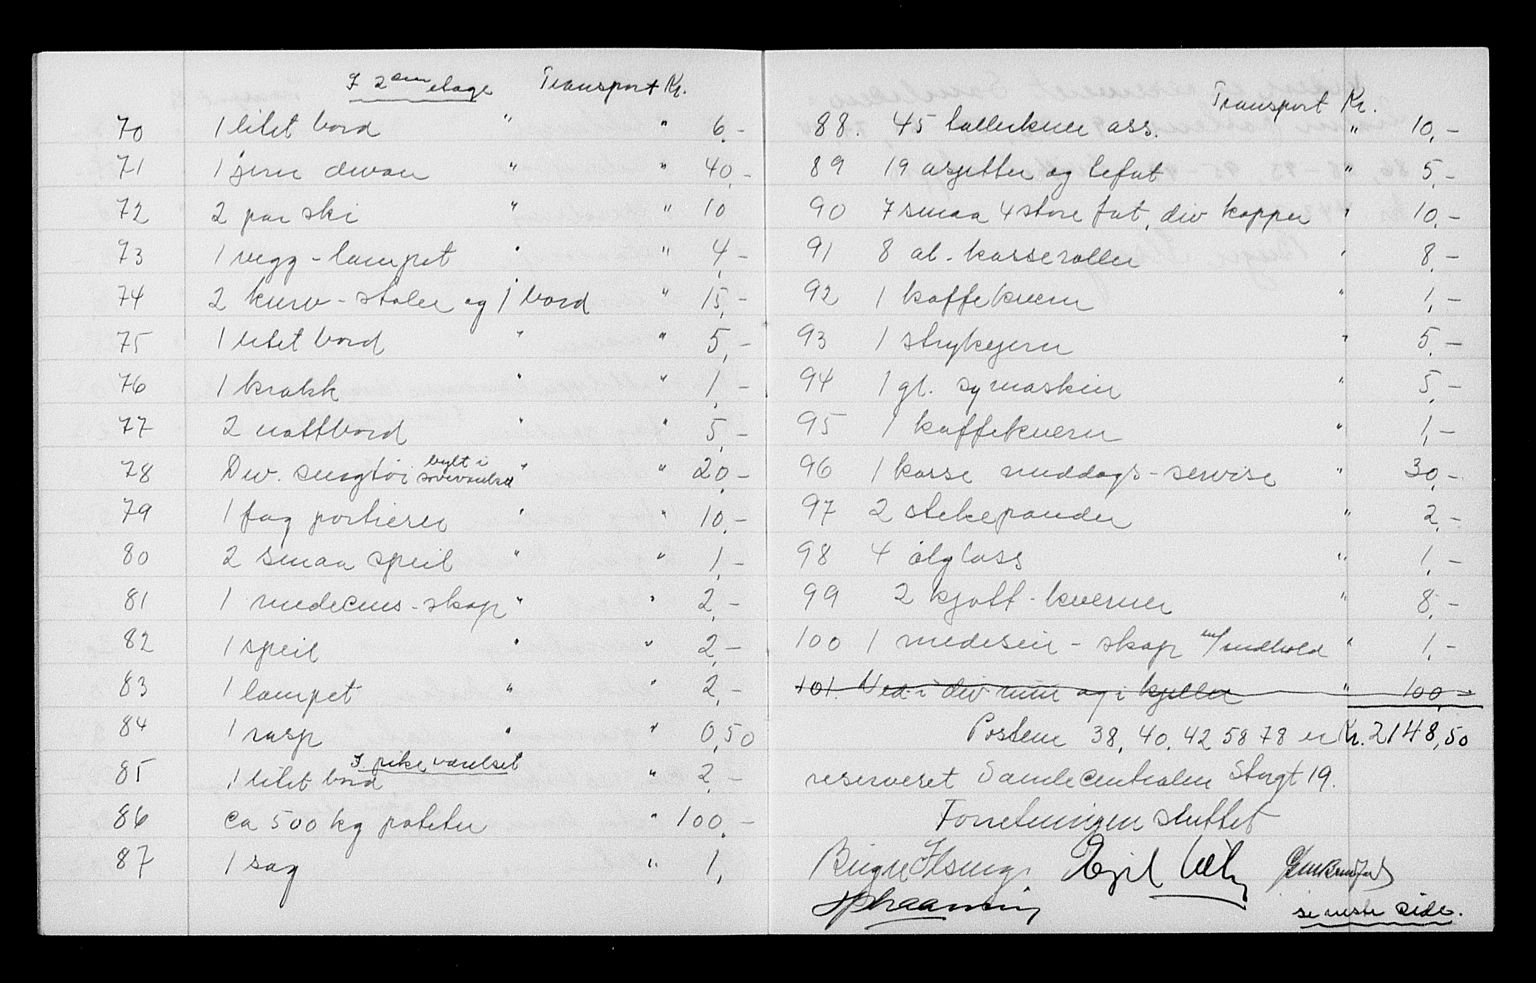 I 2den etage Transport Kr.
70 1 litet bord " " 6,-
71 1 jern divan " " 40,-
72 2 par ski " " 10
73 1 vegg-lampet " " 4,-
74 2 kurv-stoler og 1 bord " 15,-
75 1 litet bord " " 5,-
76 1 krakk " " 1,-
77 2 nattbord " " 5,-
78 Div. sengtøi bylt i soveværelse " " 20,-
79 1 fag portierer " " 10,-
80 2 smaa speil " " 1,-
81 1 medecins-skap " " 2,-
82 1 speil " " 2,-
83 1 lampet " " 2,-
84 1 rasp " " 0,50
I pikeværelset
85 1 litet bord " 2,-
86 ca 500 kg poteter " 100,-
87 1 sag " 1,
Transport Kr.
88. 45 tallerkener ass. " 10,-
89 19 asjetter og tefat " 5,-
90 7 smaa 4 store fat, div kopper " 10,-
91 8 al.-kasseroller " 8,-
92 1 kaffekvern " 1,-
93 1 strykejern " 5,-
94 1 gl. symaskin " 5,-
95 1 kaffekvern " 1,-
96 1 kasse middags-servise " 30,-
97 2 stekepander " 2,-
98 4 ølglass " 1,-
99 2 kjøtt-kverner " 8,-
100 1 medisin-skap m/indhold " 1,-
101. Ved i div rum og i kjeller " 100,-
Postene 38, 40, 42 58 78 er Kr. 2148,50
reserveret Samlecentralen Storgt 19.
Forretningen sluttet
Egil
se neste side.